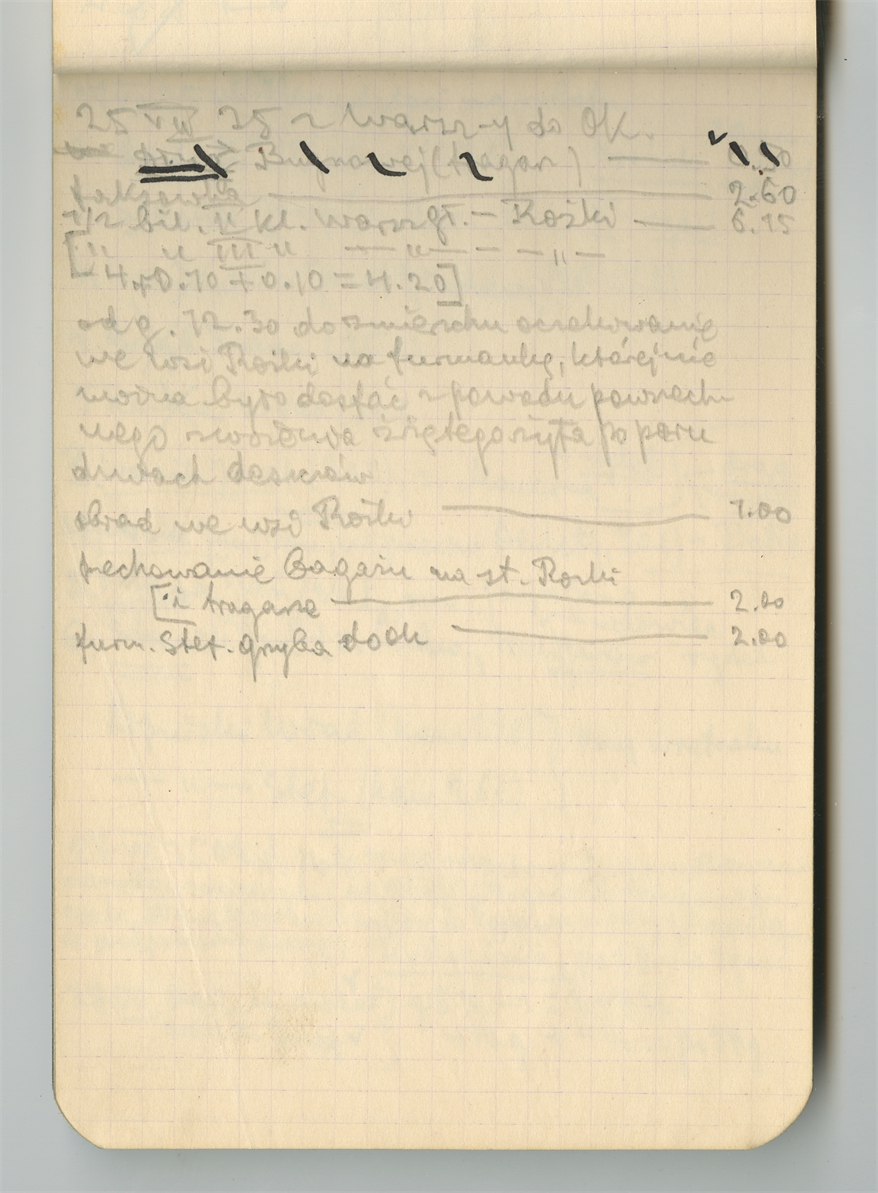 25 VII 25 z Warsz-y do Ok.
Bugnowej (tragarz) — 0.50
taksówka — 2.60
1/2 bil. II kl. Warsz gł. – Rożki — 6.15
[" " III " — " — – — " —
– 4.+0.10+0.10 = 4.20]
od g. 12.30 do zmierzchu oczekiwanie
we wsi Rożki na furmankę, której nie
można było dostać z powodu powszech
nego zwożenia zżętego żyta po paru
dniach deszczów
obiad we wsi Rożki — 1.00
przechowanie bagażu na st. Rożki
[i tragarze — 2.00
furm. Stef. Grzyba do Ok — 2.00